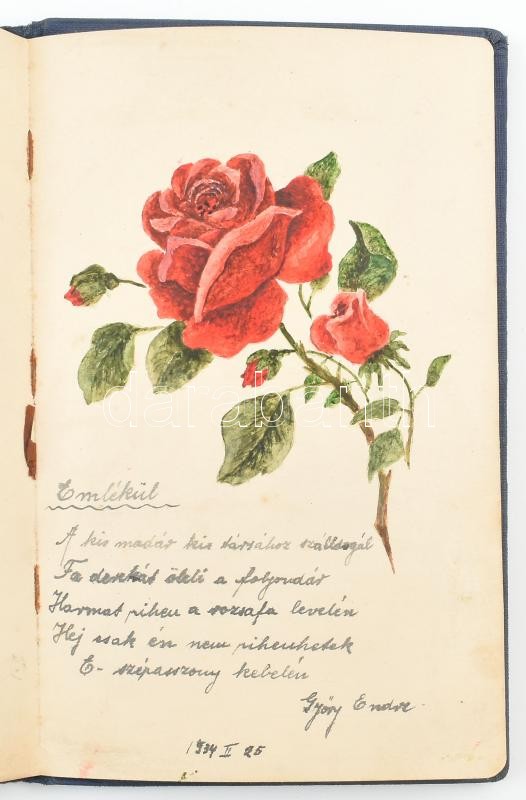 Emlékül
A kis madár kis társához szálldogál
Fa derekát öleli a folyondár
Harmat pihen a rozsafa levelén
Hej csak én nem pihenhetek
E- szépasszony kebelén
Győry Endre
1934 II 25
darabanth